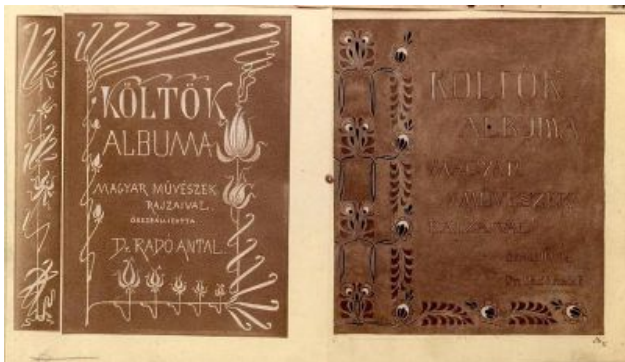 KÖLTŐK
ALBUMA
MAGYAR MŰVÉSZEK
RAJZAIVAL.
ÖSSZEÁLLÍTOTTA
Dr RADÓ ANTAL.
KÖLTŐK
ALBUMA
MAGYAR
MŰVÉSZEK
RAJZAIVAL